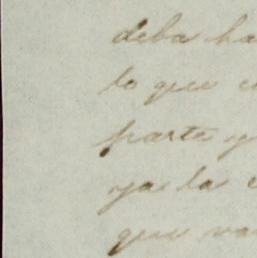 deba ha
lo que
parte y
ya la
que va